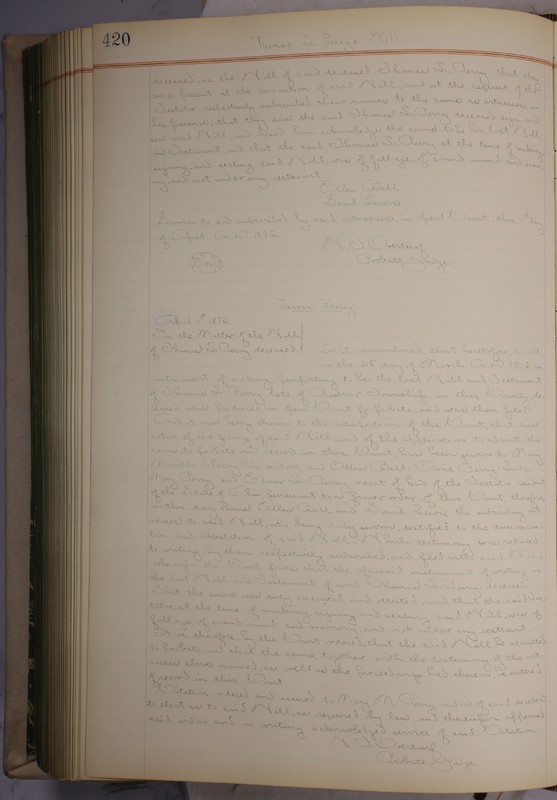 420
Thomas L. Perry Will
deceased, as the Will of said deceased, Thomas L. Perry, that they
were present at the execution of said Will, and at the request of the
Testator respectively subscribed their names to the same as witnesses, in
his presence; that they saw the said Thomas L. Perry deceased sign and
seal said Will, and heard him acknowledge the same to be his last Will
and Testament, and that the said Thomas L. Perry at the time of making
signing and sealing said Will, was of full age, of sound mind and memo
ry, and not under any restraint
Ellen Bell
Saml
Sworn to and subscribed by said witnesses in open Court, this 1st day
of April A.D. 1892.
Probate Judge
April 1st 1892
In the Matter of the Will
of Thomas L. Perry deceased
Be it remembered, that heretofore, to wit
on the 28 day of March A.D. 1892 an
instrument of writing, purporting to be the last Will and Testament
of Thomas L. Perry late of Township in this County de
ceased was produced in open Court for probate, and was then filed.
And it now being shown to the satisfaction of the Court that due
notice of the filing of said Will and of the application to admit the
same to probate and record in this Court has been given to Mary
Perry his widow and Ellen Bell, Perry
May Perry and Perry next of kin of the Testator resident
of the State of Ohio, pursuant to a former order of this Court, therefore
on this day came Ellen Bell and Saml the subscribing wit
nesses to said Will, who being duly sworn, testified to the due execu
tion and attestation of said Will, Which testimony was reduced
to writing, by them respectively subscribed, and filed with said Will.
Whereupon the Court finds that the aforesaid instrument of writing is
the last Will and Testament of said Thomas L. Perry, deceased.
That the same was duly executed and attested, and that the said Tes
tator, at the time of making, signing and sealing said Will, was of
full age, of sound mind and memory, and not under any restraint.
It is therefore, by the Court ordered, that the said Will be admitted
to probate, and that the same, together with the testimony of the wit
nesses above named, as well as the proceedings had thereon, be entered
of record in this Court.
Citation ordered and issued to Mary M. Perry widow of said decedent
to elect as to said Will, as required by law, and thereupon appeared
said widow and in writing acknowledged service of said Citation
Probate Judge